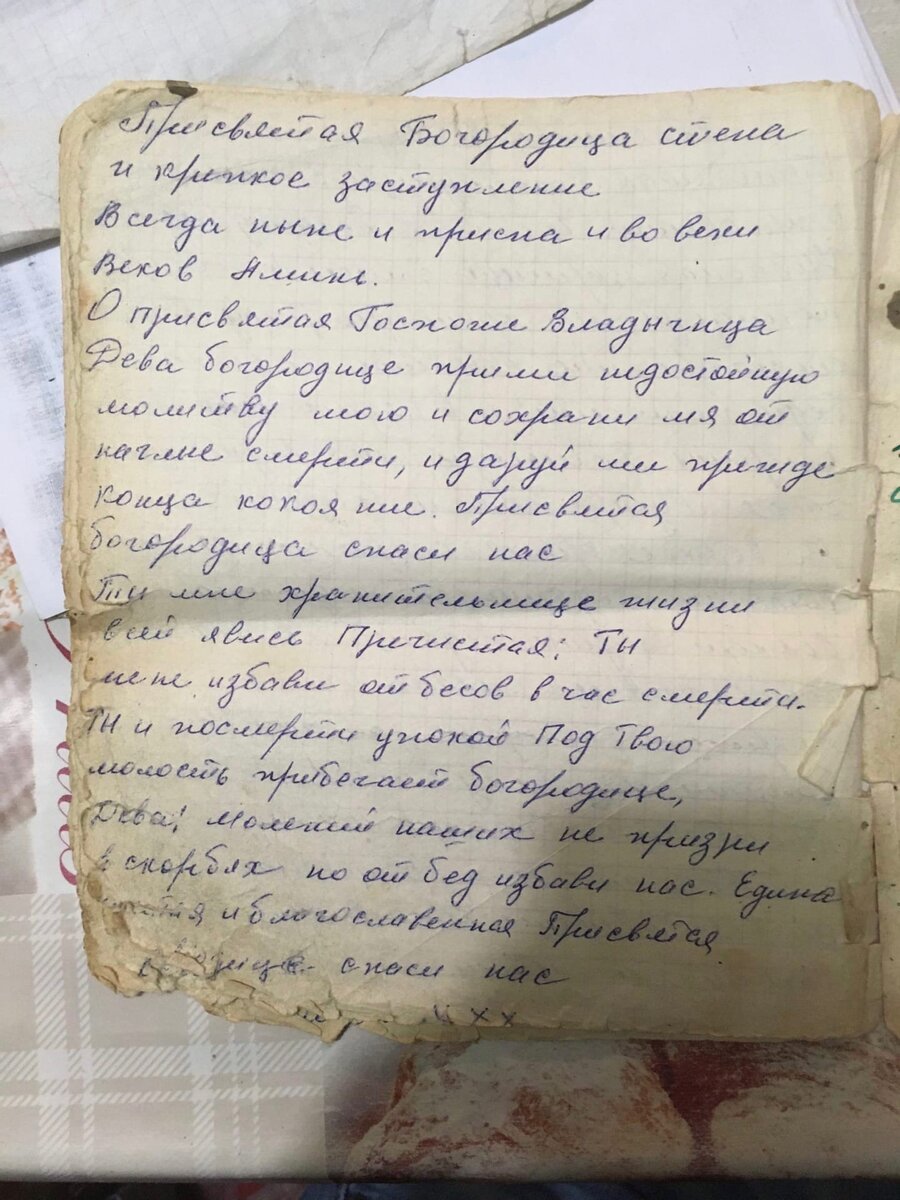 Присвятая Богородица стена
и крипкое заступление
Всегда ныне и присна и во веки
Веков Аминь.
О присвятая Госпоже Владычица
Дева богородице приими недостойную
молитву мою и сохрани мя от
наглые смерти, и даруй ми прежде
конца покояние. Присвятая
богородица спаси нас
Ты мне хранительнице жизни
всей явись Пречистая; Ты
мене избави от бесов в час смерти.
Ты и посмерти упокой Под Твою
молость прибегаем богородице,
Дева; молений наших не призри
в скорбях но от бед избави нас. Едина
и благославенная Присвятая
спаси нас